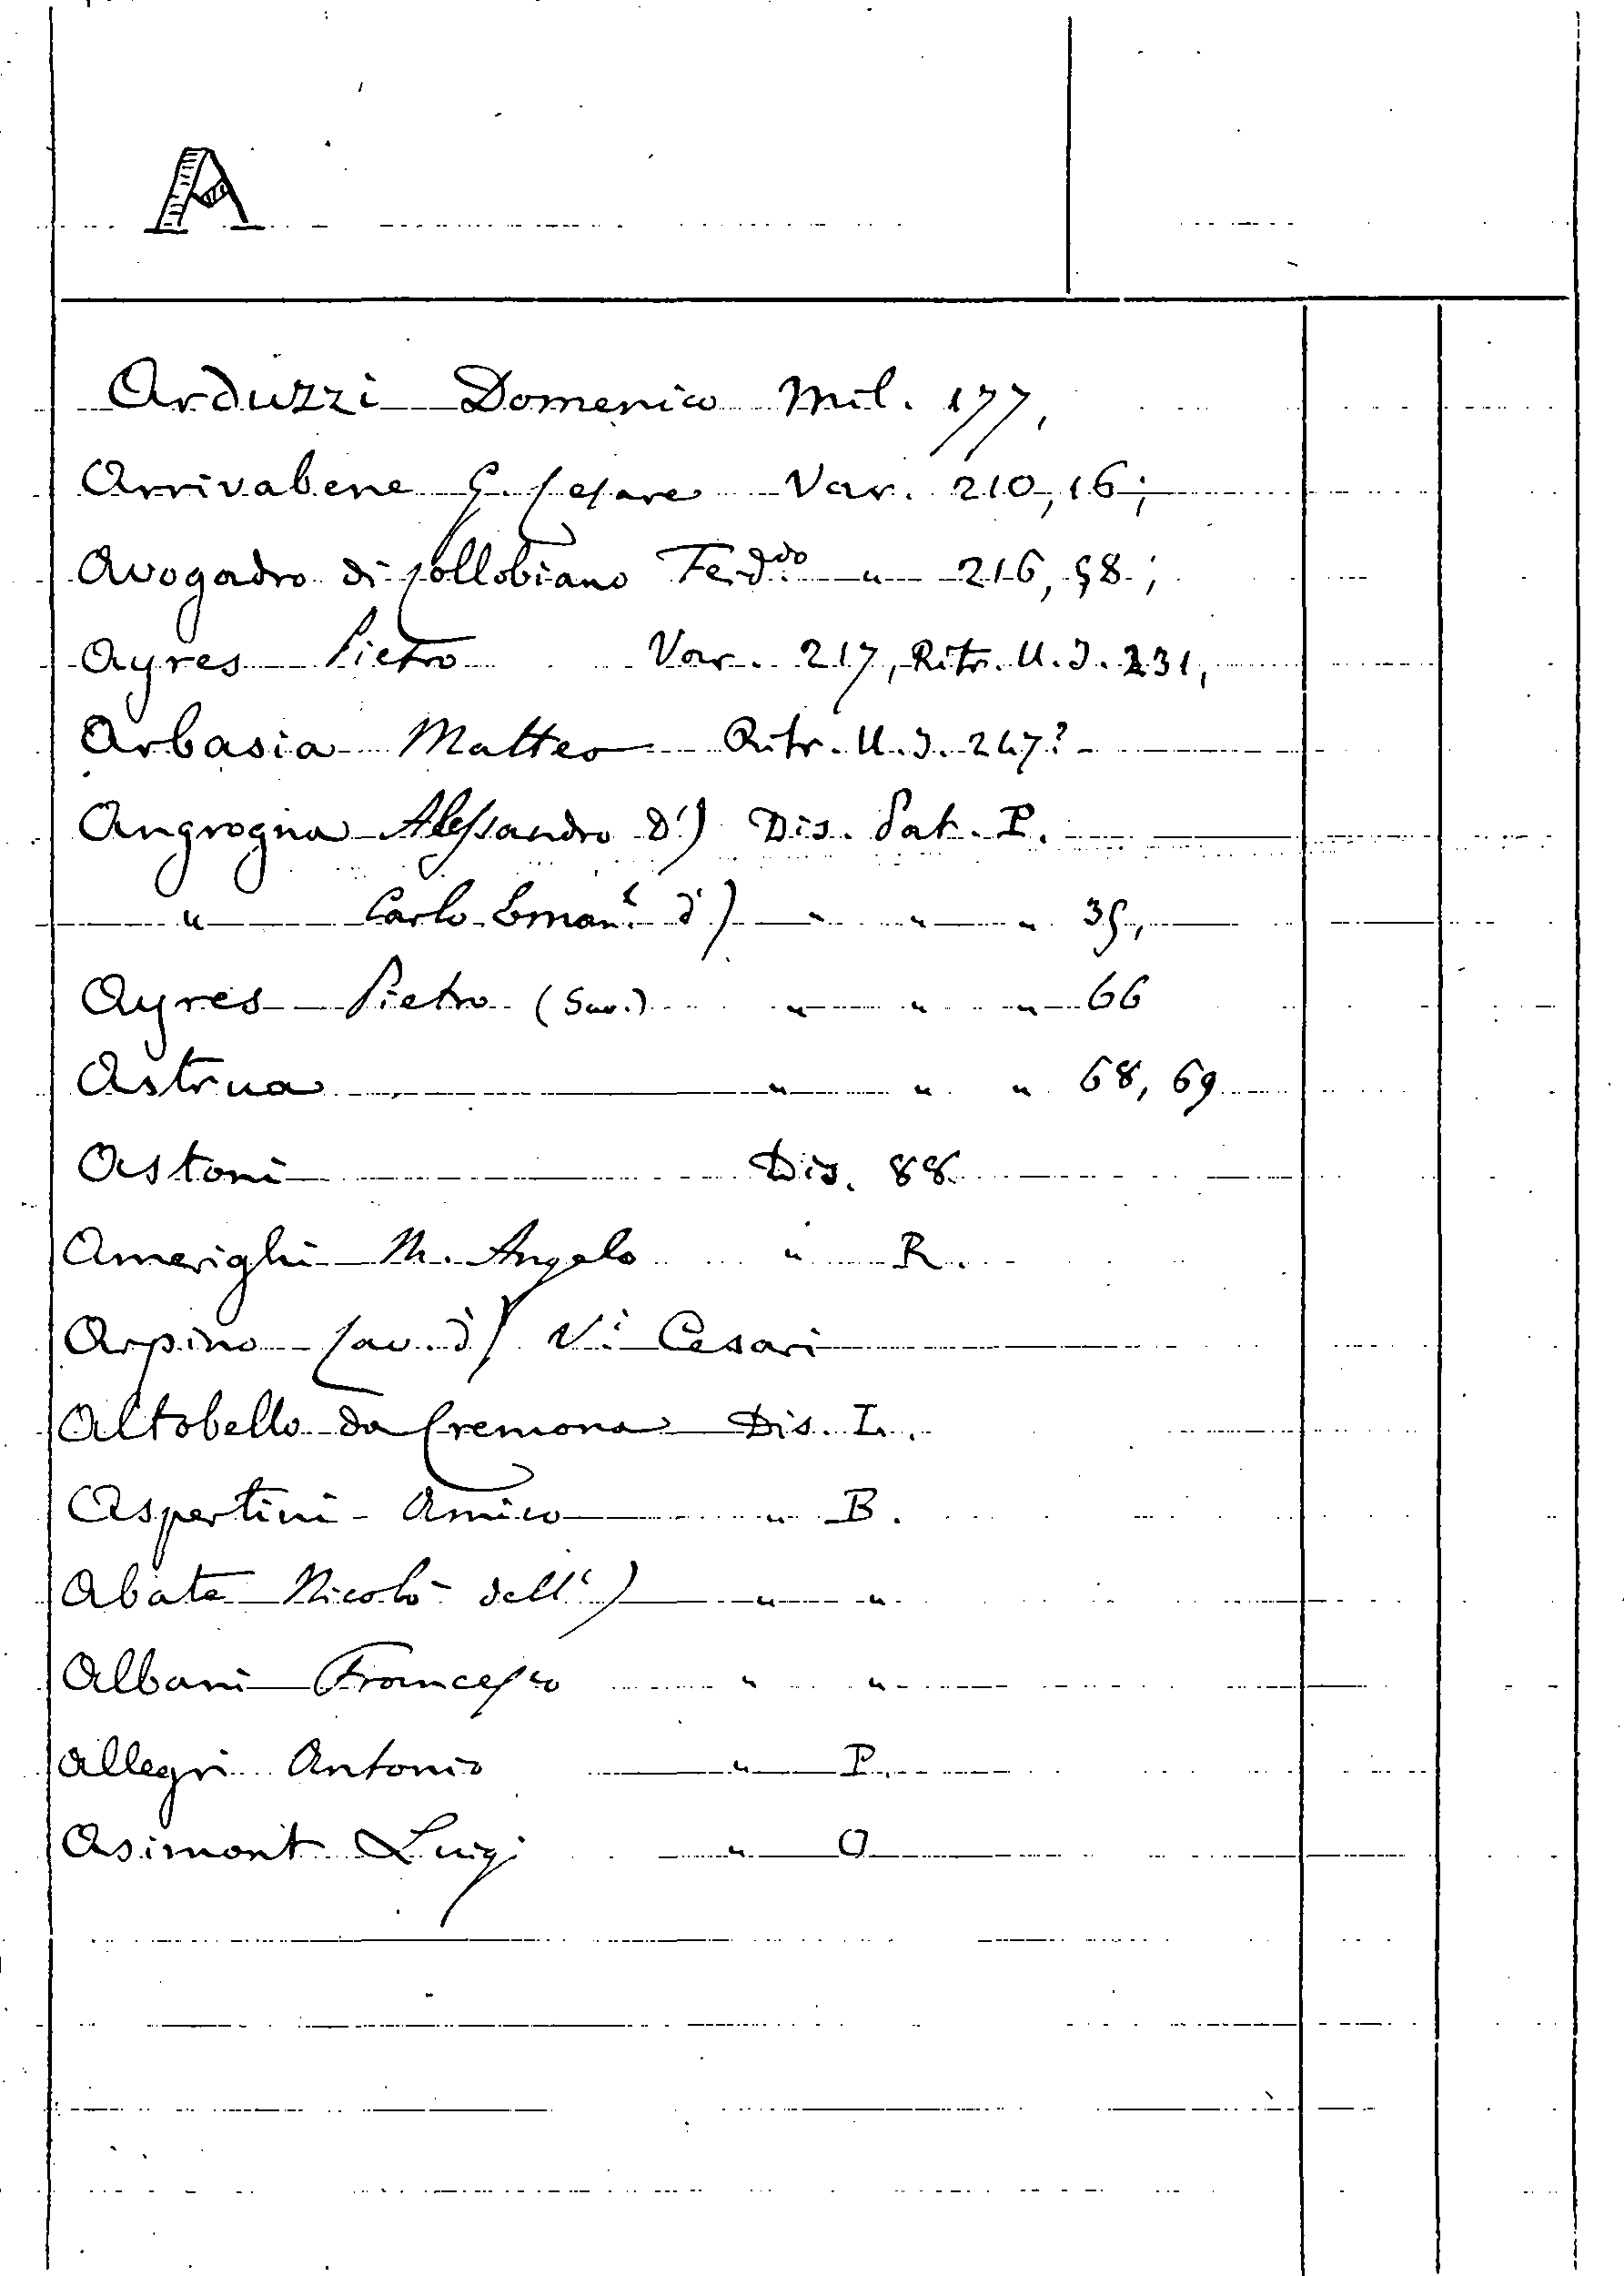 A
Arduzzi Domenico Mil. 177,
Arrivabene G. Cesare Var. 210, 16;
Avogadro di Collobiano Ferd.do " 216, 58;
Ayres Pietro Var. 217, Ritr. U. I. 231,
Arbasia Matteo Ritr. U. I. 247?
Angrogna Alessandro D') Dis. Pat. P.
" Carlo Eman.e d') " " " 35,
Ayres Pietro (Sav.) " " " 66
Astrua " " " 68, 69
Astoni Dis. 88.
Amerighi M. Angelo " R.
Arpino Cav. d') V.i Cesari
Altobello da Cremona Dis. L.
Aspertini Amico " B.
Abate Nicolò dell') " "
Albani Francesco " "
Allegri Antonio " P.
Asimont Luigi " O